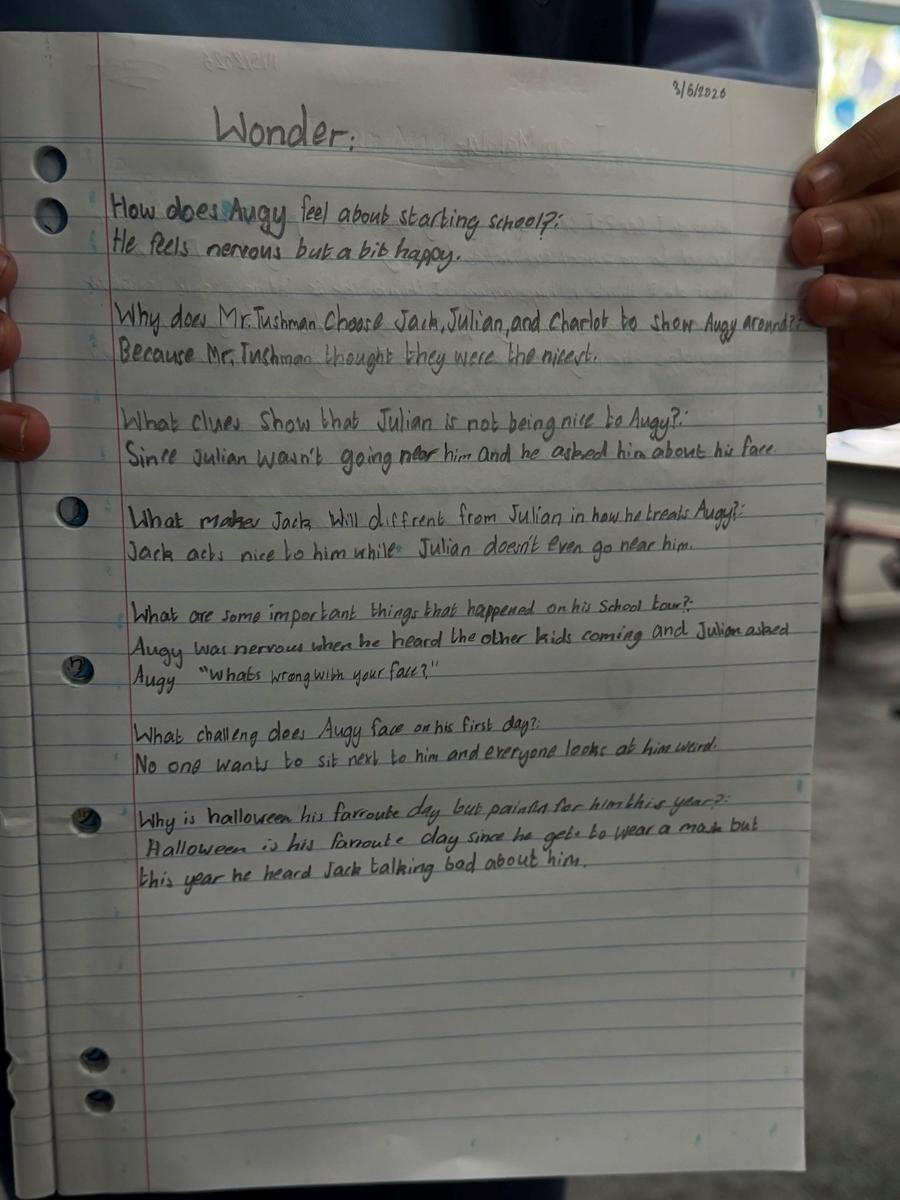 3/6/2026
Wonder:
How does Augy feel about starting school?:
He feels nervous but a bit happy.
Why does Mr.Tushman Choose Jack, Julian, and Charlot to show Augy around?:
Because Mr. Tushman thought they were the nicest.
What clues show that Julian is not being nice to Augy?:
Since Julian wasn't going near him and he asked him about his face.
What makes Jack Will diffrent from Julian in how he treats Augy?:
Jack acts nice to him while Julian doesn't even go near him.
What are some important things that happened on his school tour?:
Augy was nervous when he heard the other kids coming and Julian asked
Augy "Whats wrong with your face?"
What challeng does Augy face on his first day?:
No one wants to sit next to him and everyone looks at him weird.
Why is halloween his favroute day but painful for him this year?:
Halloween is his favroute day since he gets to wear a mask but
this year he heard Jack talking bad about him.